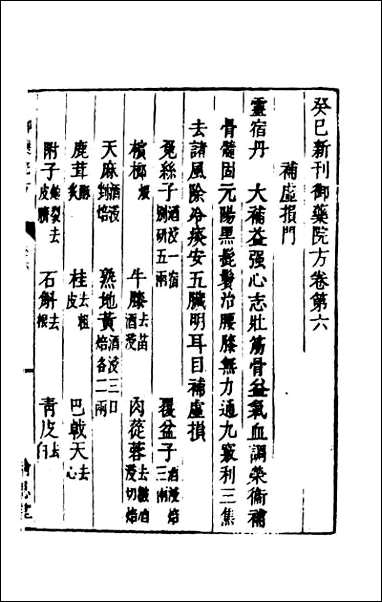 癸巳新刊御藥院方卷第六
補虛損門
靈宿丹 大補益强心志壯筋骨益氣血調榮衞補
骨髓固元陽黑髭鬢治腰膝無力通九竅利三焦
去諸風除冷痰安五臟明耳目補虛損
兔絲子酒浸一宿別研五兩 覆盆子酒浸焙三兩
檳榔 牛膝去苗酒浸 肉蓯蓉去皺皮酒浸切焙
天麻酒浸到焙 熟地黃酒浸三日焙各二兩
鹿茸酥炙 桂去粗皮 巴戟天去心
附子炮裂去皮臍 石斛去根 青皮去白